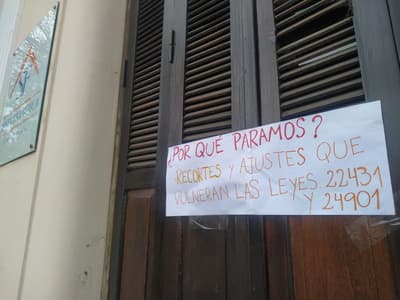 ¿POR QUÉ PARAMOS?
RECORTES Y AJUSTES QUE
VULNERAN LAS LEYES 22431
Y 24901